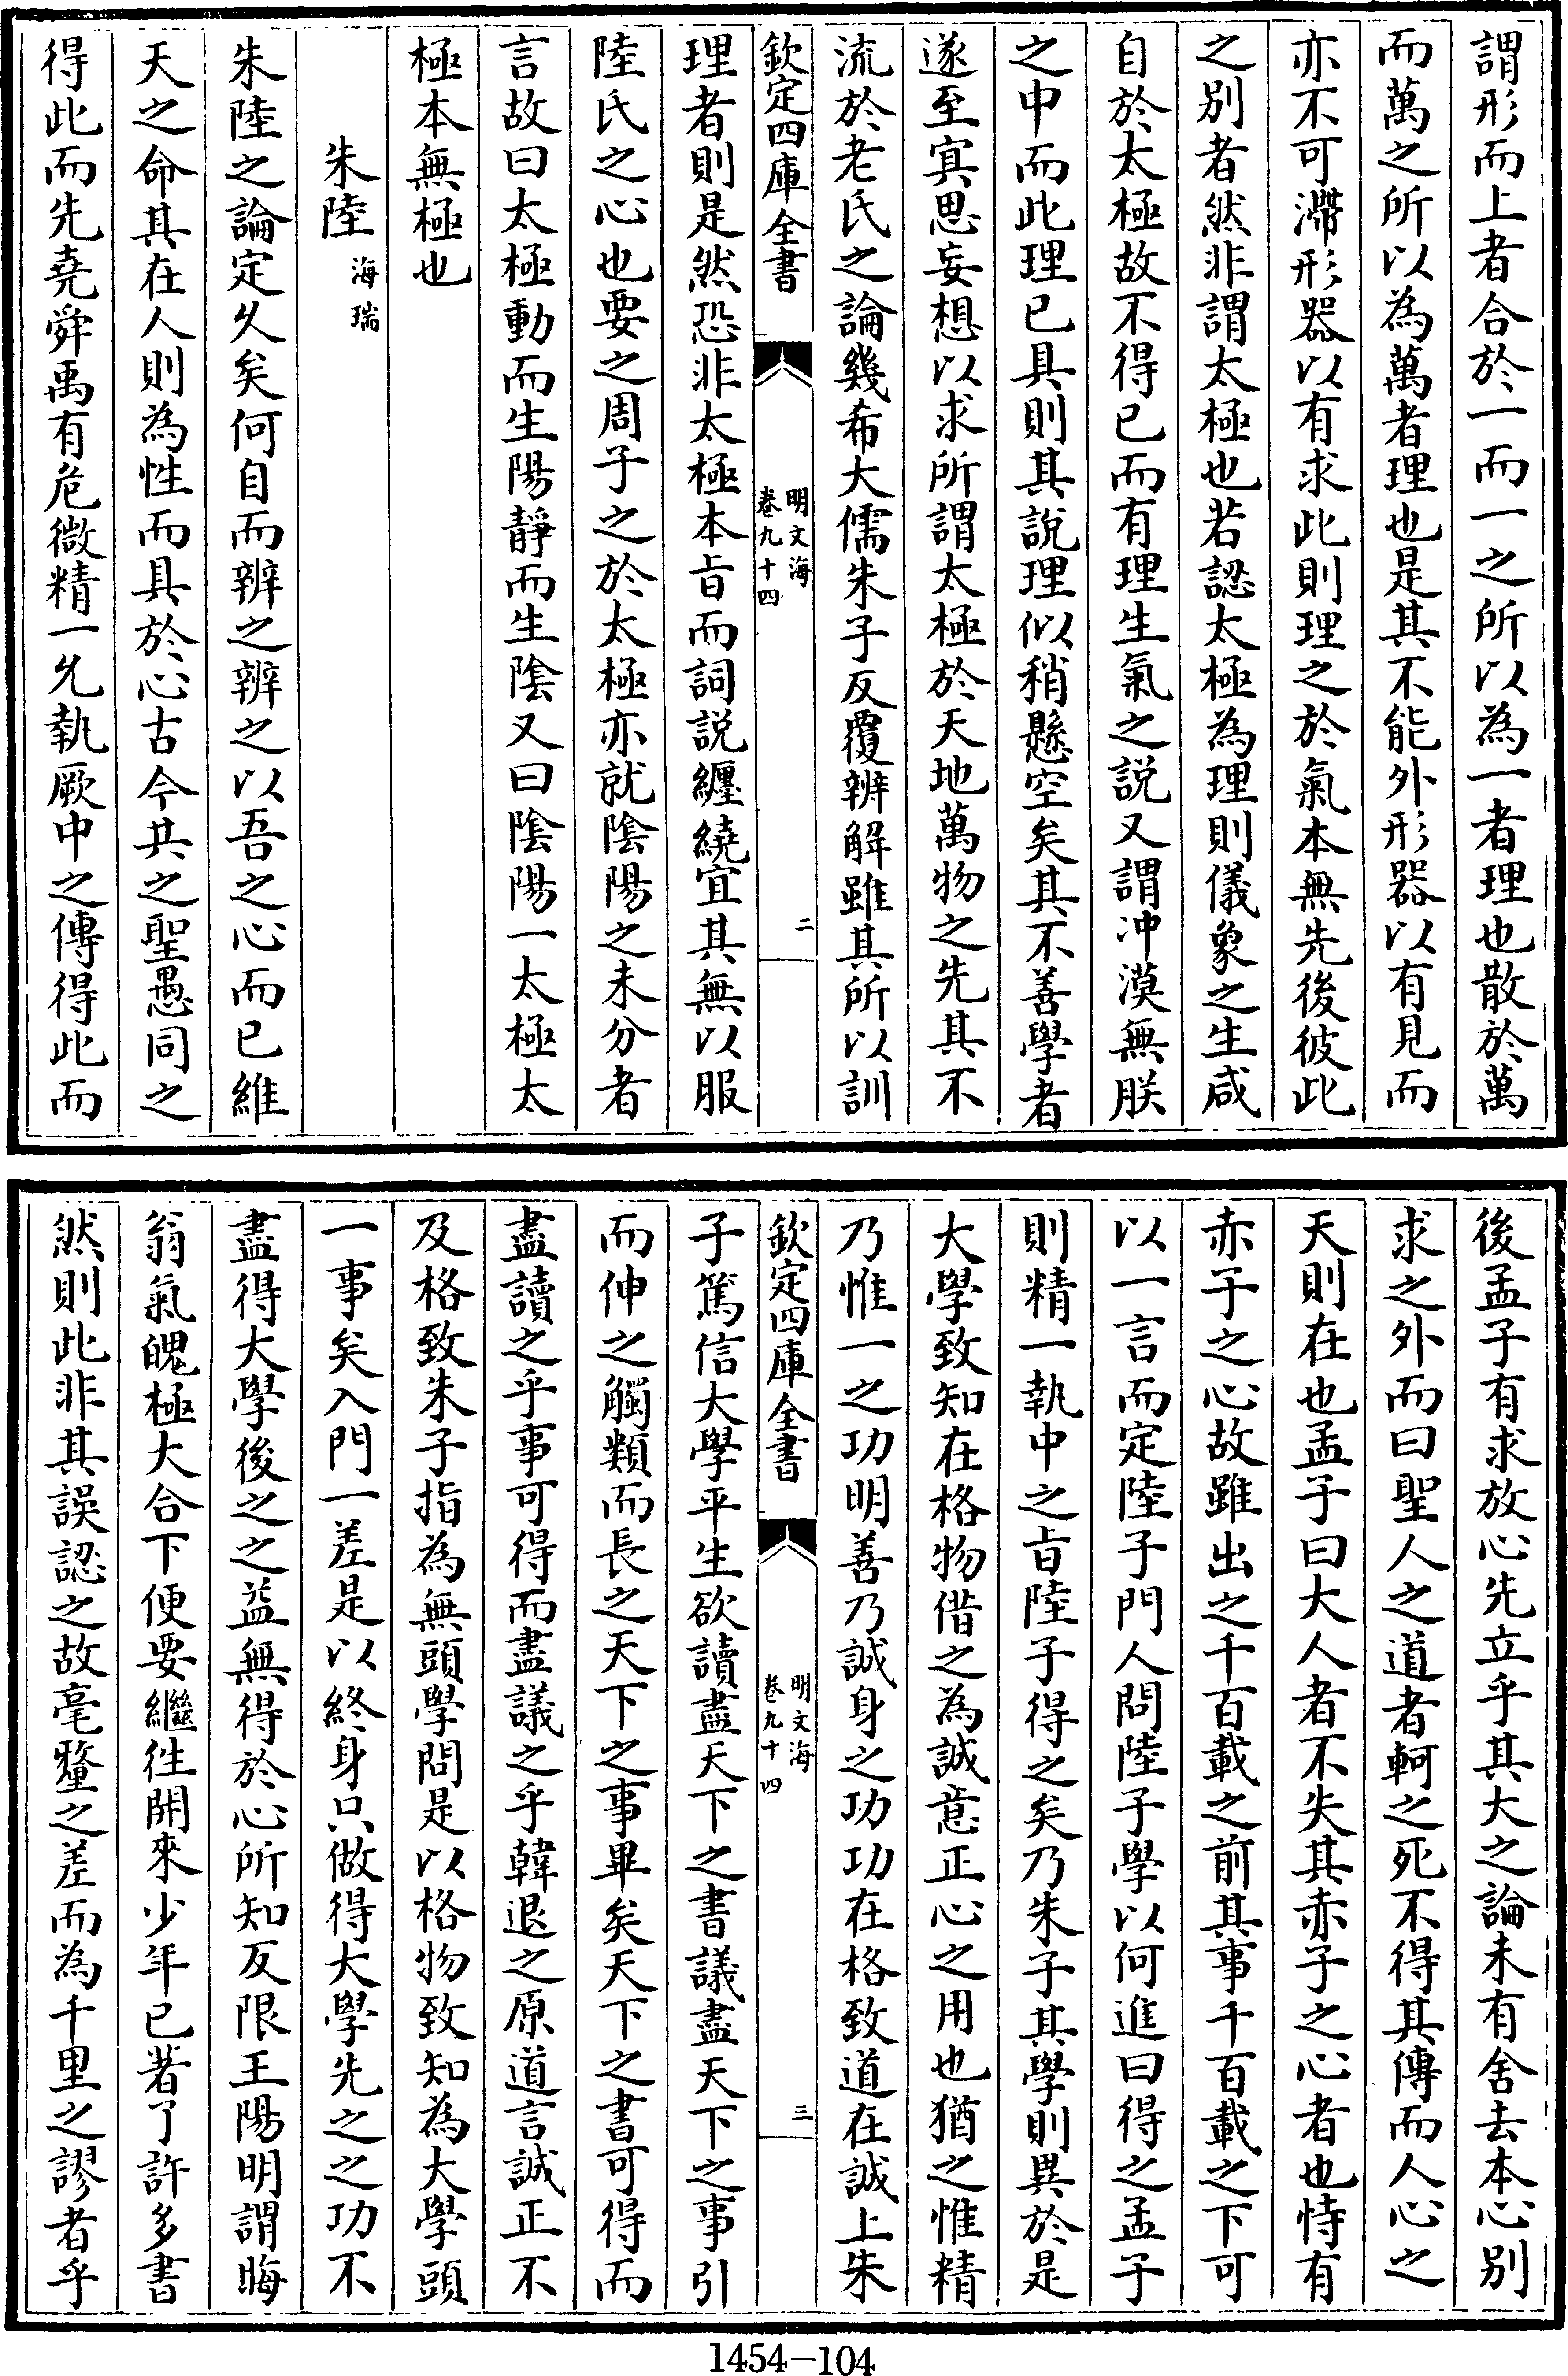 謂形而上者合於一而一之所以為一者理也散於萬
而萬之所以為萬者理也是其不能外形器以有見而
亦不可滯形器以有求此則理之於氣本無先後彼此
之別者然非謂太極也若認太極為理則儀象之生咸
自於太極故不得已而有理生氣之說又謂冲漠無朕
之中而此理已具則其說理似稍懸空矣其不善學者
遂至冥思妄想以求所謂太極於天地萬物之先其不
流於老氏之論幾希大儒朱子反覆辨解雖其所以訓
欽定四庫全書
明文海
卷九十四
二
理者則是然恐非太極本旨而詞説纏繞宜其無以服
陸氏之心也要之周子之於太極亦就陰陽之未分者
言故曰太極動而生陽靜而生陰又曰陰陽一太極太
極本無極也
朱陸 海瑞
朱陸之論定久矣何自而辨之辨之以吾之心而已維
天之命其在人則為性而具於心古今共之聖愚同之
得此而先堯舜禹有危微精一允執厥中之傳得此而
後孟子有求放心先立乎其大之論未有舍去本心別
求之外而曰聖人之道者軻之死不得其傳而人心之
天則在也孟子曰大人者不失其赤子之心者也恃有
赤子之心故雖出之千百載之前其事千百載之下可
以一言而定陸子門人問陸子學以何進曰得之孟子
則精一執中之旨陸子得之矣乃朱子其學則異於是
大學致知在格物借之為誠意正心之用也猶之惟精
乃惟一之功明善乃誠身之功功在格致道在誠上朱
欽定四庫全書
明文海
卷九十四
三
子篤信大學平生欲讀盡天下之書議盡天下之事引
而伸之觸類而長之天下之事畢矣天下之書可得而
盡讀之乎事可得而盡議之乎韓退之原道言誠正不
及格致朱子指為無頭學問是以格物致知為大學頭
一事矣入門一差是以終身只做得大學先之之功不
盡得大學後之之益無得於心所知反限王陽明謂晦
翁氣魄極大合下便要繼徃開來少年已著了許多書
然則此非其誤認之故毫釐之差而為千里之謬者乎
1454-104